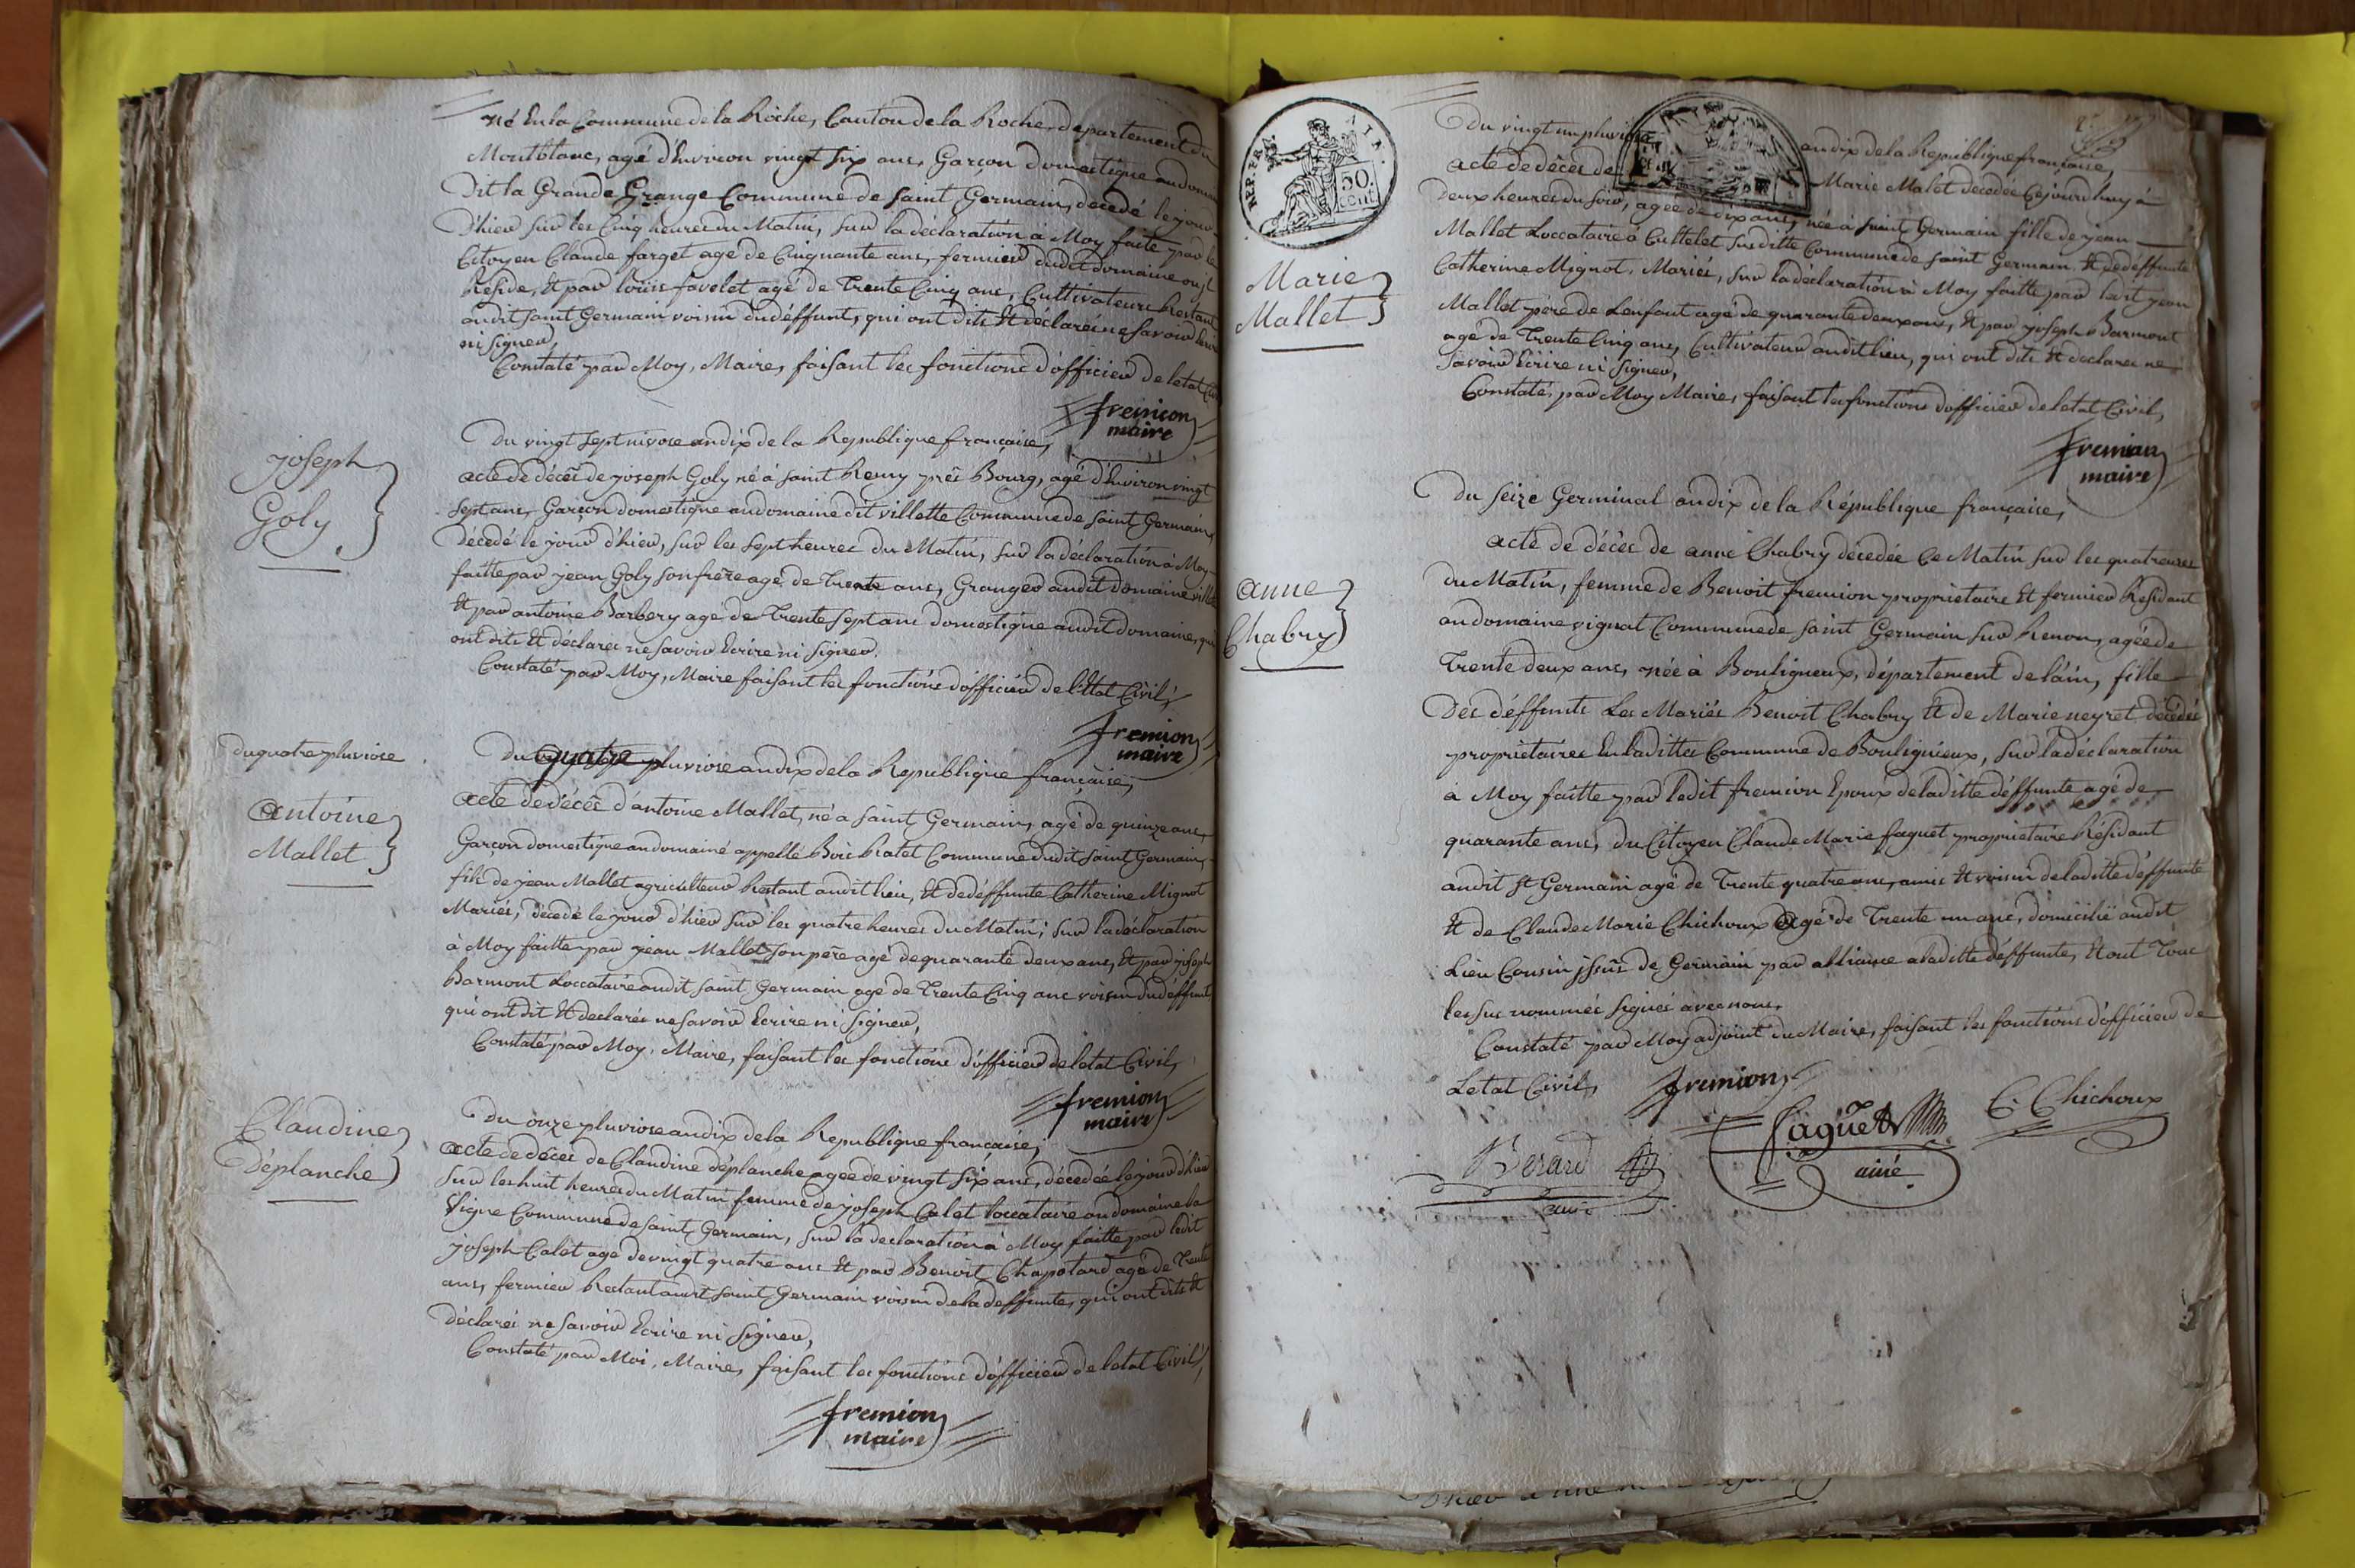 né En la Commune de la Roche, Canton de la Roche, departement du
Montblanc, agé d'Environ vingt six ans, Garçon domestique au domaine
Dit la Grande Grange Commune de saint Germain, décedé le jour
D'hier sur les Cinq heures du Matin, sur la déclaration à Moy faite par le
Citoyen Claude farget agé de Cinquante ans, fermier dudit domaine ou il
Reside, Et par loüis favelet agé de Trente Cinq ans, Cultivateurs Restant
audit saint Germain voisin du déffunt, qui ont dits Et déclarés ne savoir Ecrire
ni signer,
Constaté par Moy, Maire, faisant les fonctions d'officier de letat Civil
fremion
maire
joseph
Goly
Du vingt sept nivose an dix de la Republique française,
acte de décès de joseph Goly né à saint Remy près Bourg, agé d'Environ vingt
sept ans, Garçon domestique au domaine dit villette Commune de saint Germain,
décedé le jour d'hier, sur les sept heures du Matin, sur la déclaration à Moy
faitte par jean Goly son frère agé de trente ans, Granger audit domaine
Et par antoine Barbery agé de Trente sept ans domestique audit domaine, qui
ont dits Et déclarés ne savoir Ecrire ni signer.
Constaté par Moy, Maire faisant les fonctions d'officier de l'Etat Civil,
fremion
maire
du quatre pluviose
Du quatre pluviose an dix de la Republique française,
antoine
Mallet
acte de décès d'antoine Mallet, né à saint Germain, agé de quinze ans,
Garçon domestique au domaine appellé Bois Ratet Commune dudit saint Germain,
fils de jean Mallet agriculteur Restant audit lieu, Et de déffunte Catherine Mignot
Mariés, décedé le jour d'hier sur les quatre heures du Matin; sur la déclaration
à Moy faitte par jean Mallet son père agé de quarante deux ans, Et par joseph
Barmont Loccataire audit saint Germain agé de Trente Cinq ans voisin du déffunt,
qui ont dit Et declarés ne savoir Ecrire ni signer,
Constaté par Moy, Maire, faisant les fonctions d'officier de letat Civil,
fremion
maire
Claudine
Déplanche
Du onze pluviose an dix de la Republique française,
acte de décès de Claudine déplanche agée de vingt six ans, décedée le jour d'hier
sur les huit heures du Matin femme de joseph Calet Loccataire au domaine la
Vigne Commune de saint Germain, sur la declaration à Moy faitte par ledit
joseph Calet agé de vingt quatre ans Et par Benoit Chapotard agé de Trente
ans, fermier Restant audit saint Germain voisin de la deffunte, qui ont dits Et
Déclarés ne savoir Ecrire ni signer,
Constaté par Moi, Maire, faisant les fonctions d'officier de letat Civil,
fremion
maire
REP. FRA.
AIN.
50
cent
Marie
Mallet
Du vingt un pluviose an dix de la Republique française,
acte de décès de Marie Malet décedée Cejourdhuy à
deux heures du soir, agée de dix ans, née à saint Germain fille de jean
Mallet Loccataire à Cuttelet susditte Commune de saint Germain Et de déffunte
Catherine Mignot, Mariés, sur la déclaration à Moy faitte par ledit jean
Mallet père de Lenfant agé de quarante deux ans, Et par joseph Barmont
agé de Trente Cinq ans, Cultivateur audit lieu, qui ont dits Et declarés ne
savoir Ecrire ni signer,
Constaté, par Moy Maire, faisant les fonctions d'officier de letat Civil,
fremion
maire
Du seize Germinal an dix de la République française,
anne
Chabry
acte de décès de anne Chabry décedée Ce Matin sur les quatre heures
du Matin, femme de Benoit fremion proprietaire Et fermier Residant
au domaine vignat Commune de saint Germain sur Renon, agée de
Trente deux ans, née à Bouligneux, département de l'ain, fille
Des déffunts Les Mariés Benoit Chabry Et de Marie neyret décédés
proprietaires En laditte Commune de Bouligneux, sur la déclaration
à Moy faitte par ledit fremion Epoux de laditte déffunte agé de
quarante ans, du Citoyen Claude Marie faguet proprietaire Résidant
audit st Germain agé de Trente quatre ans, amis Et voisin de laditte déffunte
Et de Claude Marie Chichoux agé de Trente un ans, domicilié audit
Lieu Cousin issus de Germain par alliance a laditte déffunte, Et ont Tous
les sus nommés signés avec nous,
Constaté par Moy adjoint du Maire, faisant les fonctions d'officier de
Letat Civil,
fremion
Faguet
ainé
C. Chichoux
Berard